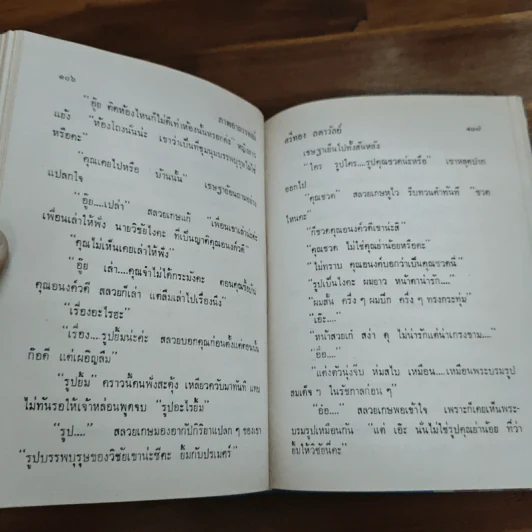 ๑๐๖
ภาพอาถรรพณ์
"อุ๊ย คิดห้องไหนก็ไม่ดีเท่าห้องนั้นหรอกค่ะ"
แย้ง "ห้องโถงนั่นน่ะ เขาว่าเป็นที่ชุมนุมบรรพบุรุษไม่ใช่
หรือคะ"
"คุณเคยไปหรือ บ้านนั้น" เชษฐาย้อนถามอย่าง
แปลกใจ
"อุ๊ย....เปล่า" สลวยเกษแก้ "เพื่อนเขาเล่าน่ะค่ะ
เพื่อนเล่าให้ฟัง นายวิชัยไงคะ ที่เป็นญาติคุณอนงค์วดี"
"คุณไม่เห็นเคยเล่าให้ฟัง"
"อุ๊ย เล่า....คุณจำไม่ได้กระมังคะ ตอนคุณ
คุณอนงค์วดี สลวยก็เล่า แต่ลืมเล่าไปเรื่องนึง"
"เรื่องอะไรฮะ"
"เรื่อง....รูปยิ้มน่ะค่ะ สลวยบอกคุณก่อนตั้งแต่ตอนนั้น
ก้อดี แต่เผอิญลืม"
"รูปยิ้ม" คราวนี้คนฟังสะดุ้ง เหลียวควับมาทันที แทบ
ไม่ทันรอให้เจ้าหล่อนพูดจบ "รูปอะไรยิ้ม"
"รูป...." สลวยเกษมองอากัปกิริยาแปลก ๆ ของเขา
"รูปบรรพบุรุษของวิชัยเขาน่ะซีคะ ยิ้มกับปรเมศร์"
ตรีทอง ถดารัลย์
๑๐๗
เชษฐาเย็นไปทั้งสันหลัง
"ใคร รูปใคร....รูปคุณชวดน่ะหรือ" เขาหลุดปาก
ออกไป
"คุณชวด" สลวยเกษหูไว รีบทวนคำทันที "ชวด
ไหนคะ"
"ก็ชวดคุณอนงค์วดีเขาน่ะสิ"
"คุณชวด ไม่ใช่คุณย่าน้อยหรือคะ"
"ไม่ทราบ คุณอนงค์บอกว่าเป็นคุณชวดนี่"
"รูปเป็นไงคะ ผมยาว หน้าตาน่ารัก...."
"ผมสั้น ครึ่ง ๆ ผมปีก ครึ่ง ๆ ทรงกระทุ่ม"
"เอ๊ะ...."
"หน้าสวยเก๋ สง่า ดุ ไม่น่ารักแต่น่าเกรงขาม...."
"อือ...."
"แต่งตัวนุ่งจีบ ห่มสไบ เหมือน....เหมือนพระบรมรูป
สมเด็จ ๆ ในรัชกาลก่อน ๆ"
"อ้อ...." สลวยเกษพอเข้าใจ เพราะก็เคยเห็นพระ-
บรมรูปเหมือนกัน "แต่ เอ๊ะ นั่นไม่ใช่รูปคุณย่าน้อย ที่ว่า
ยิ้มให้วิชัยนี่คะ"